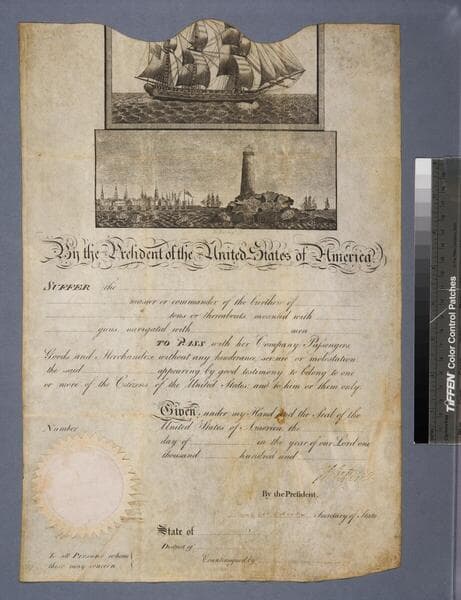 By the President of the United States of America,
SUFFER the
master or commander of the burthen of
tons or thereabouts, mounted with
guns, navigated with men
TO PASS with her Company Passengers
Goods and Merchandize without any hinderance, seisure or molestation
the said appearing by good testimony to belong to one
or more of the Citizens of the United States; and to him or them only.
Given, under my Hand and the Seal of the
United States of America the
day of in the year of our Lord one
thousand hundred and
Number
By the President.
Secretary of State
State of
District of
Countersigned by
To all Persons whom
these may concern
TIFFEN Color Control Patches